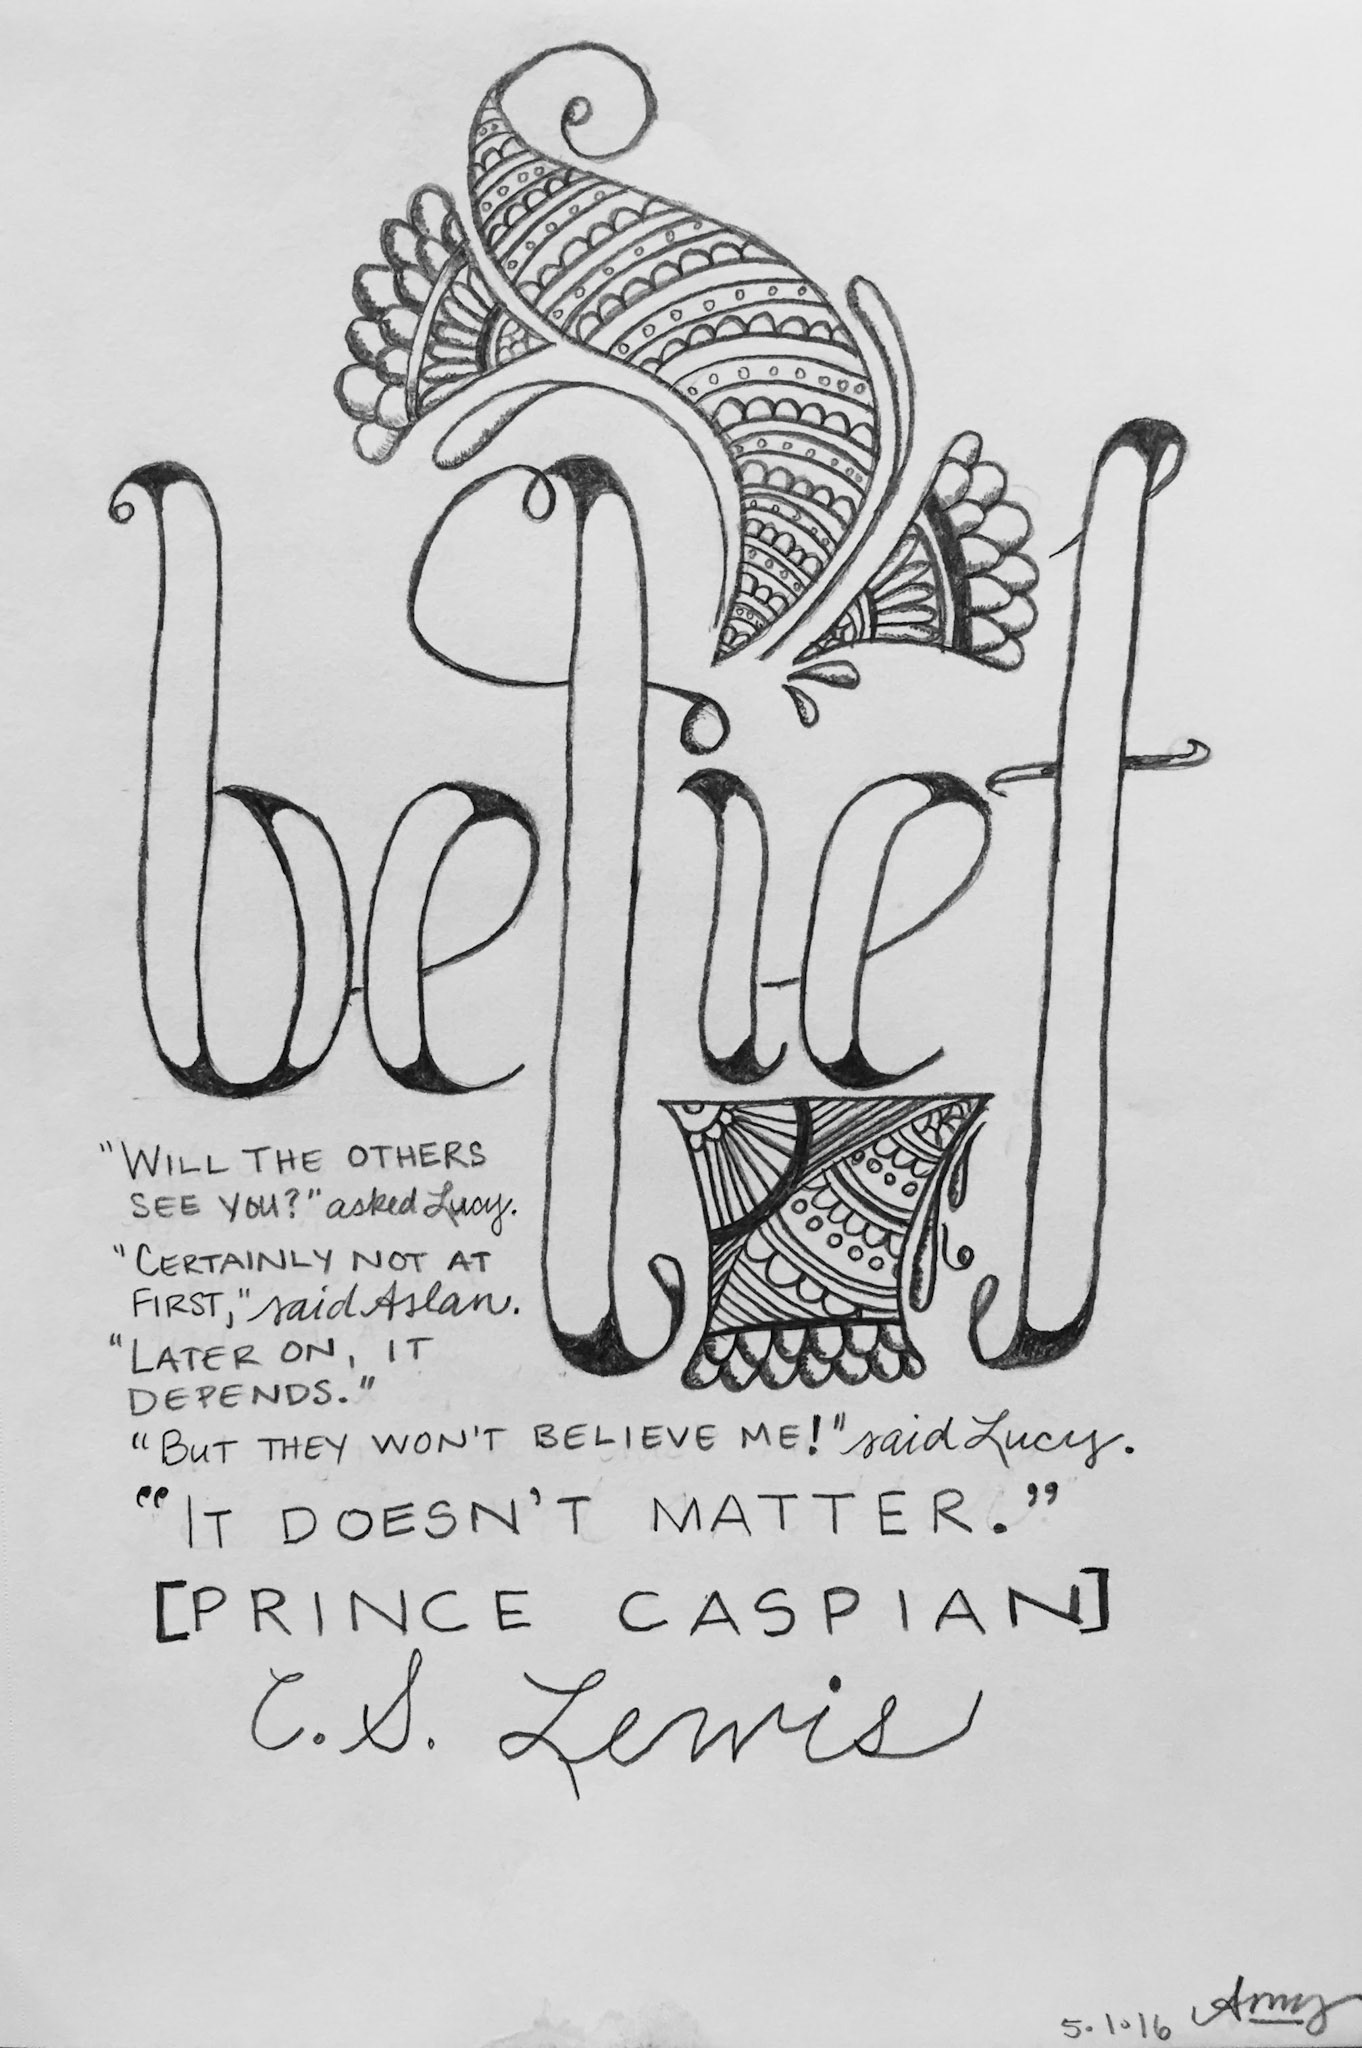 belief
"WILL THE OTHERS
SEE YOU?" asked Lucy.
"CERTAINLY NOT AT
FIRST," said Aslan.
"LATER ON, IT
DEPENDS."
"BUT THEY WON'T BELIEVE ME!" said Lucy.
"IT DOESN'T MATTER."
[PRINCE CASPIAN]
C.S. Lewis
5.1.16 Amy